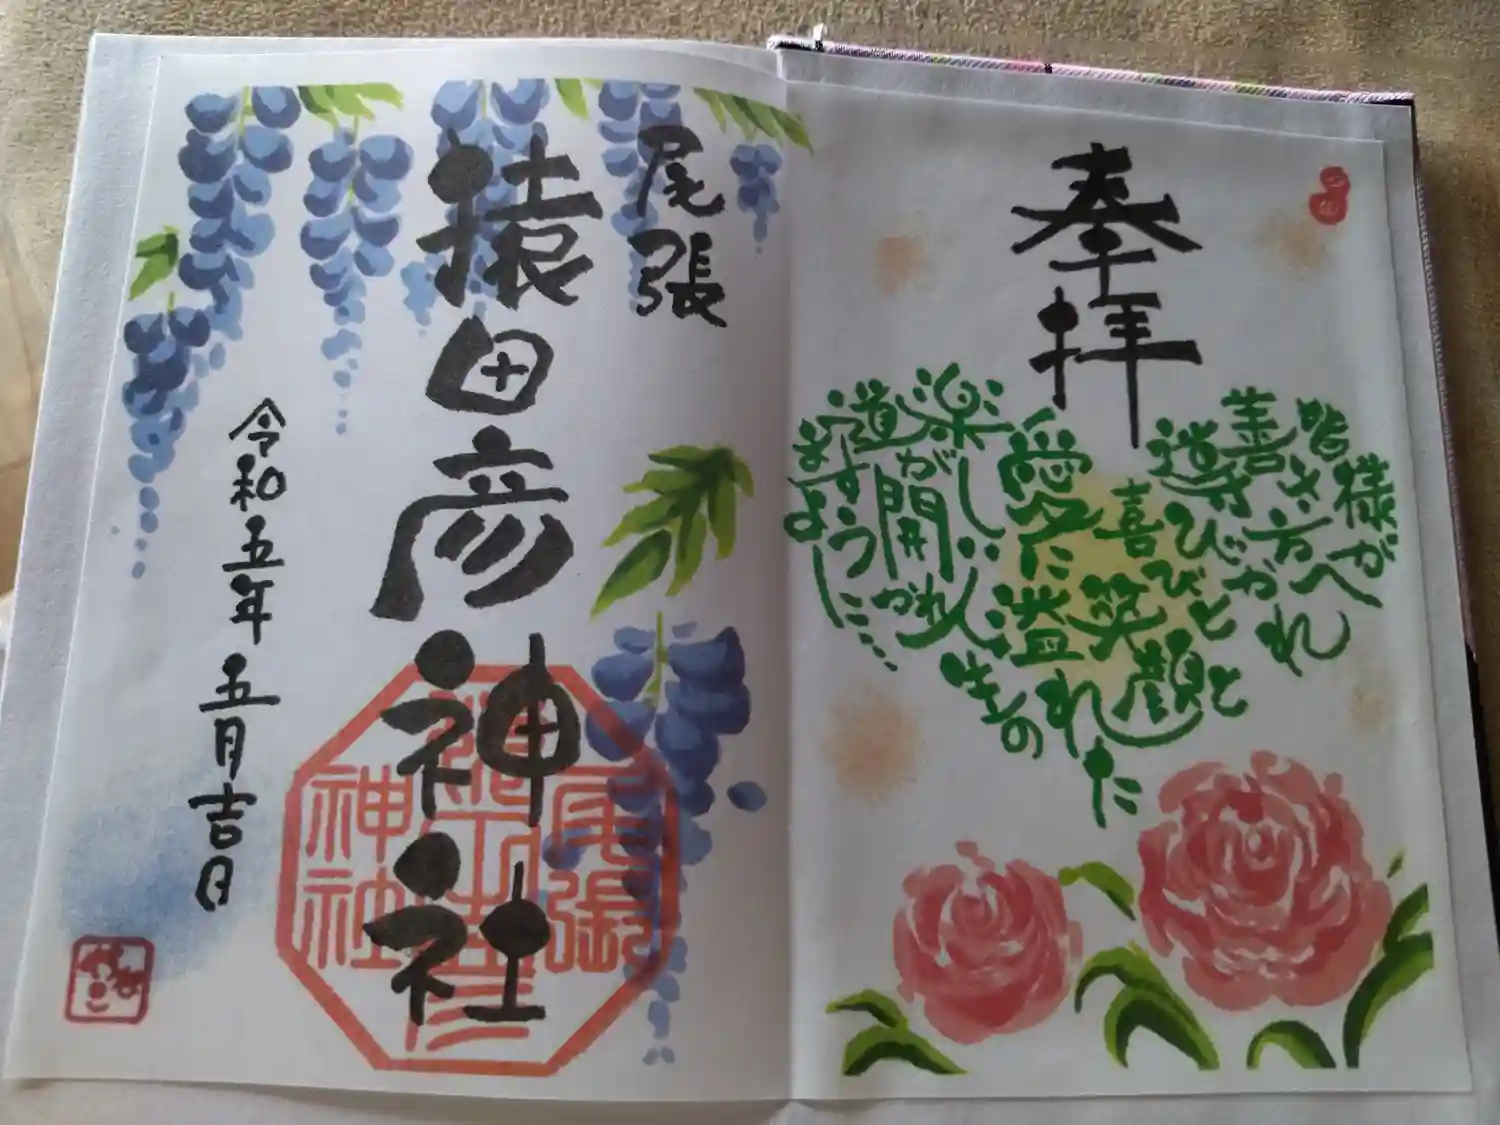 奉拝
皆様が
善き方へ
導びかれ
喜びと
笑顔と
愛に溢れた
楽しい人生の
道が開かれ
ますように…
尾張
猿田彦神社
尾張
猿田彦
神社
令和五年五月吉日